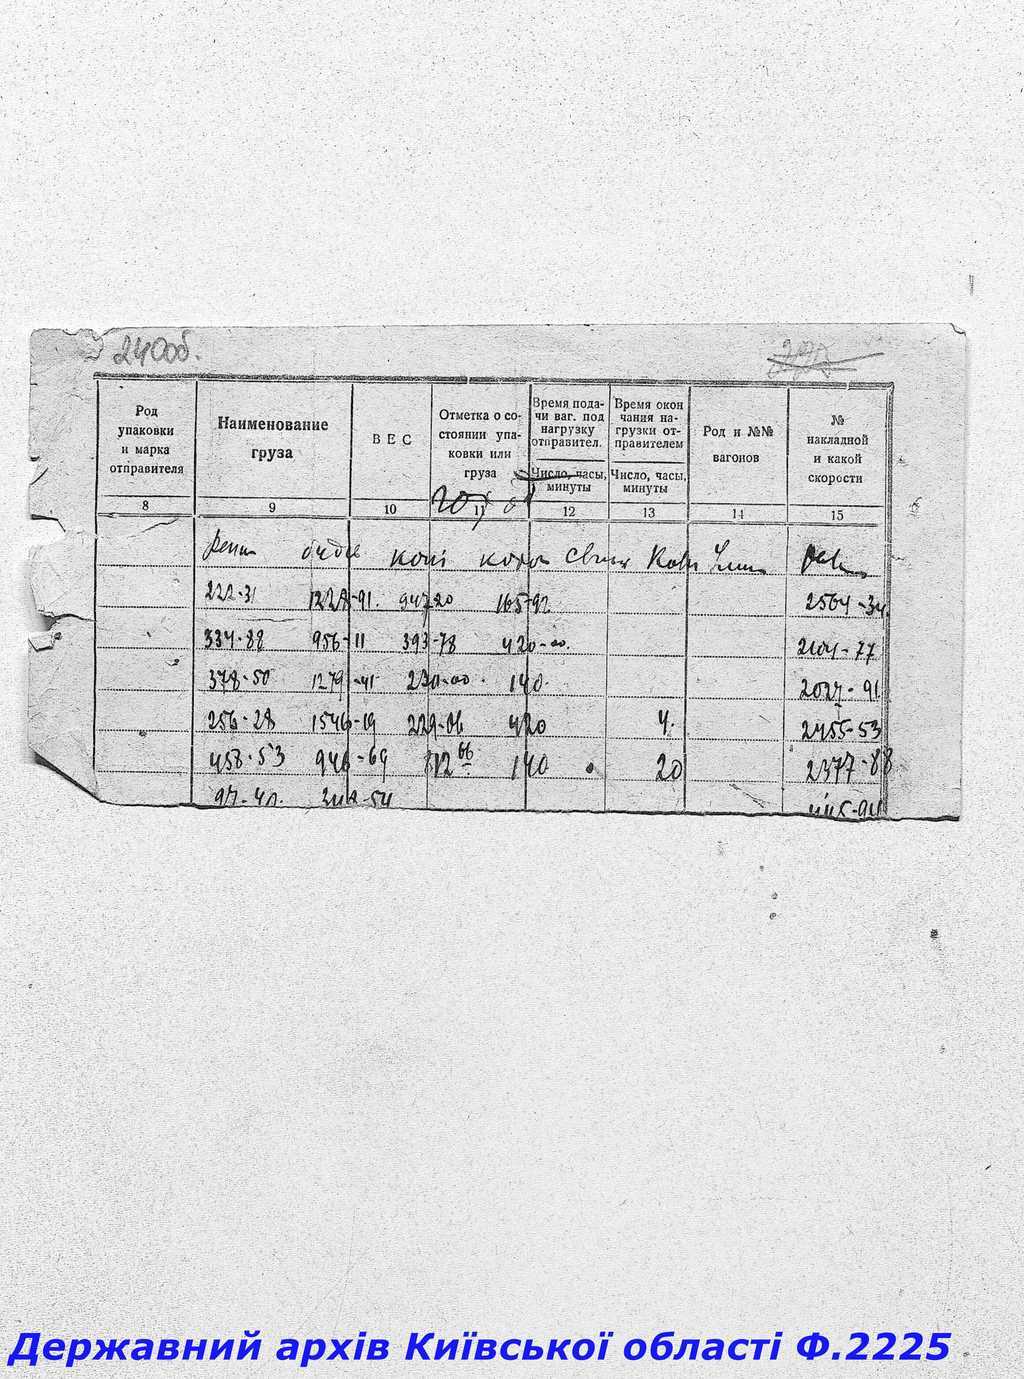 240об.
Род упаковки и марка отправителя
Наименование груза
ВЕС
Отметка о состоянии упаковки или груза
Время подачи ваг. под нагрузку отправител.
Число, часы, минуты
Время окончания нагрузки отправителем
Число, часы, минуты
Род и №№ вагонов
№ накладной и какой скорости
8 9 10 11 12 13 14 15
коні
222-31 1228-91. 947-20 165-92 2564-34
334-88 956-11 393-78 420-00. 2104-77
378-50 1279-41 230-00. 140. 2027-91
256-28 1546-19 229-06 420 4. 2455-53
458-53 946-69 812 66 140 20 2377-88
Державний архів Київської області Ф.2225